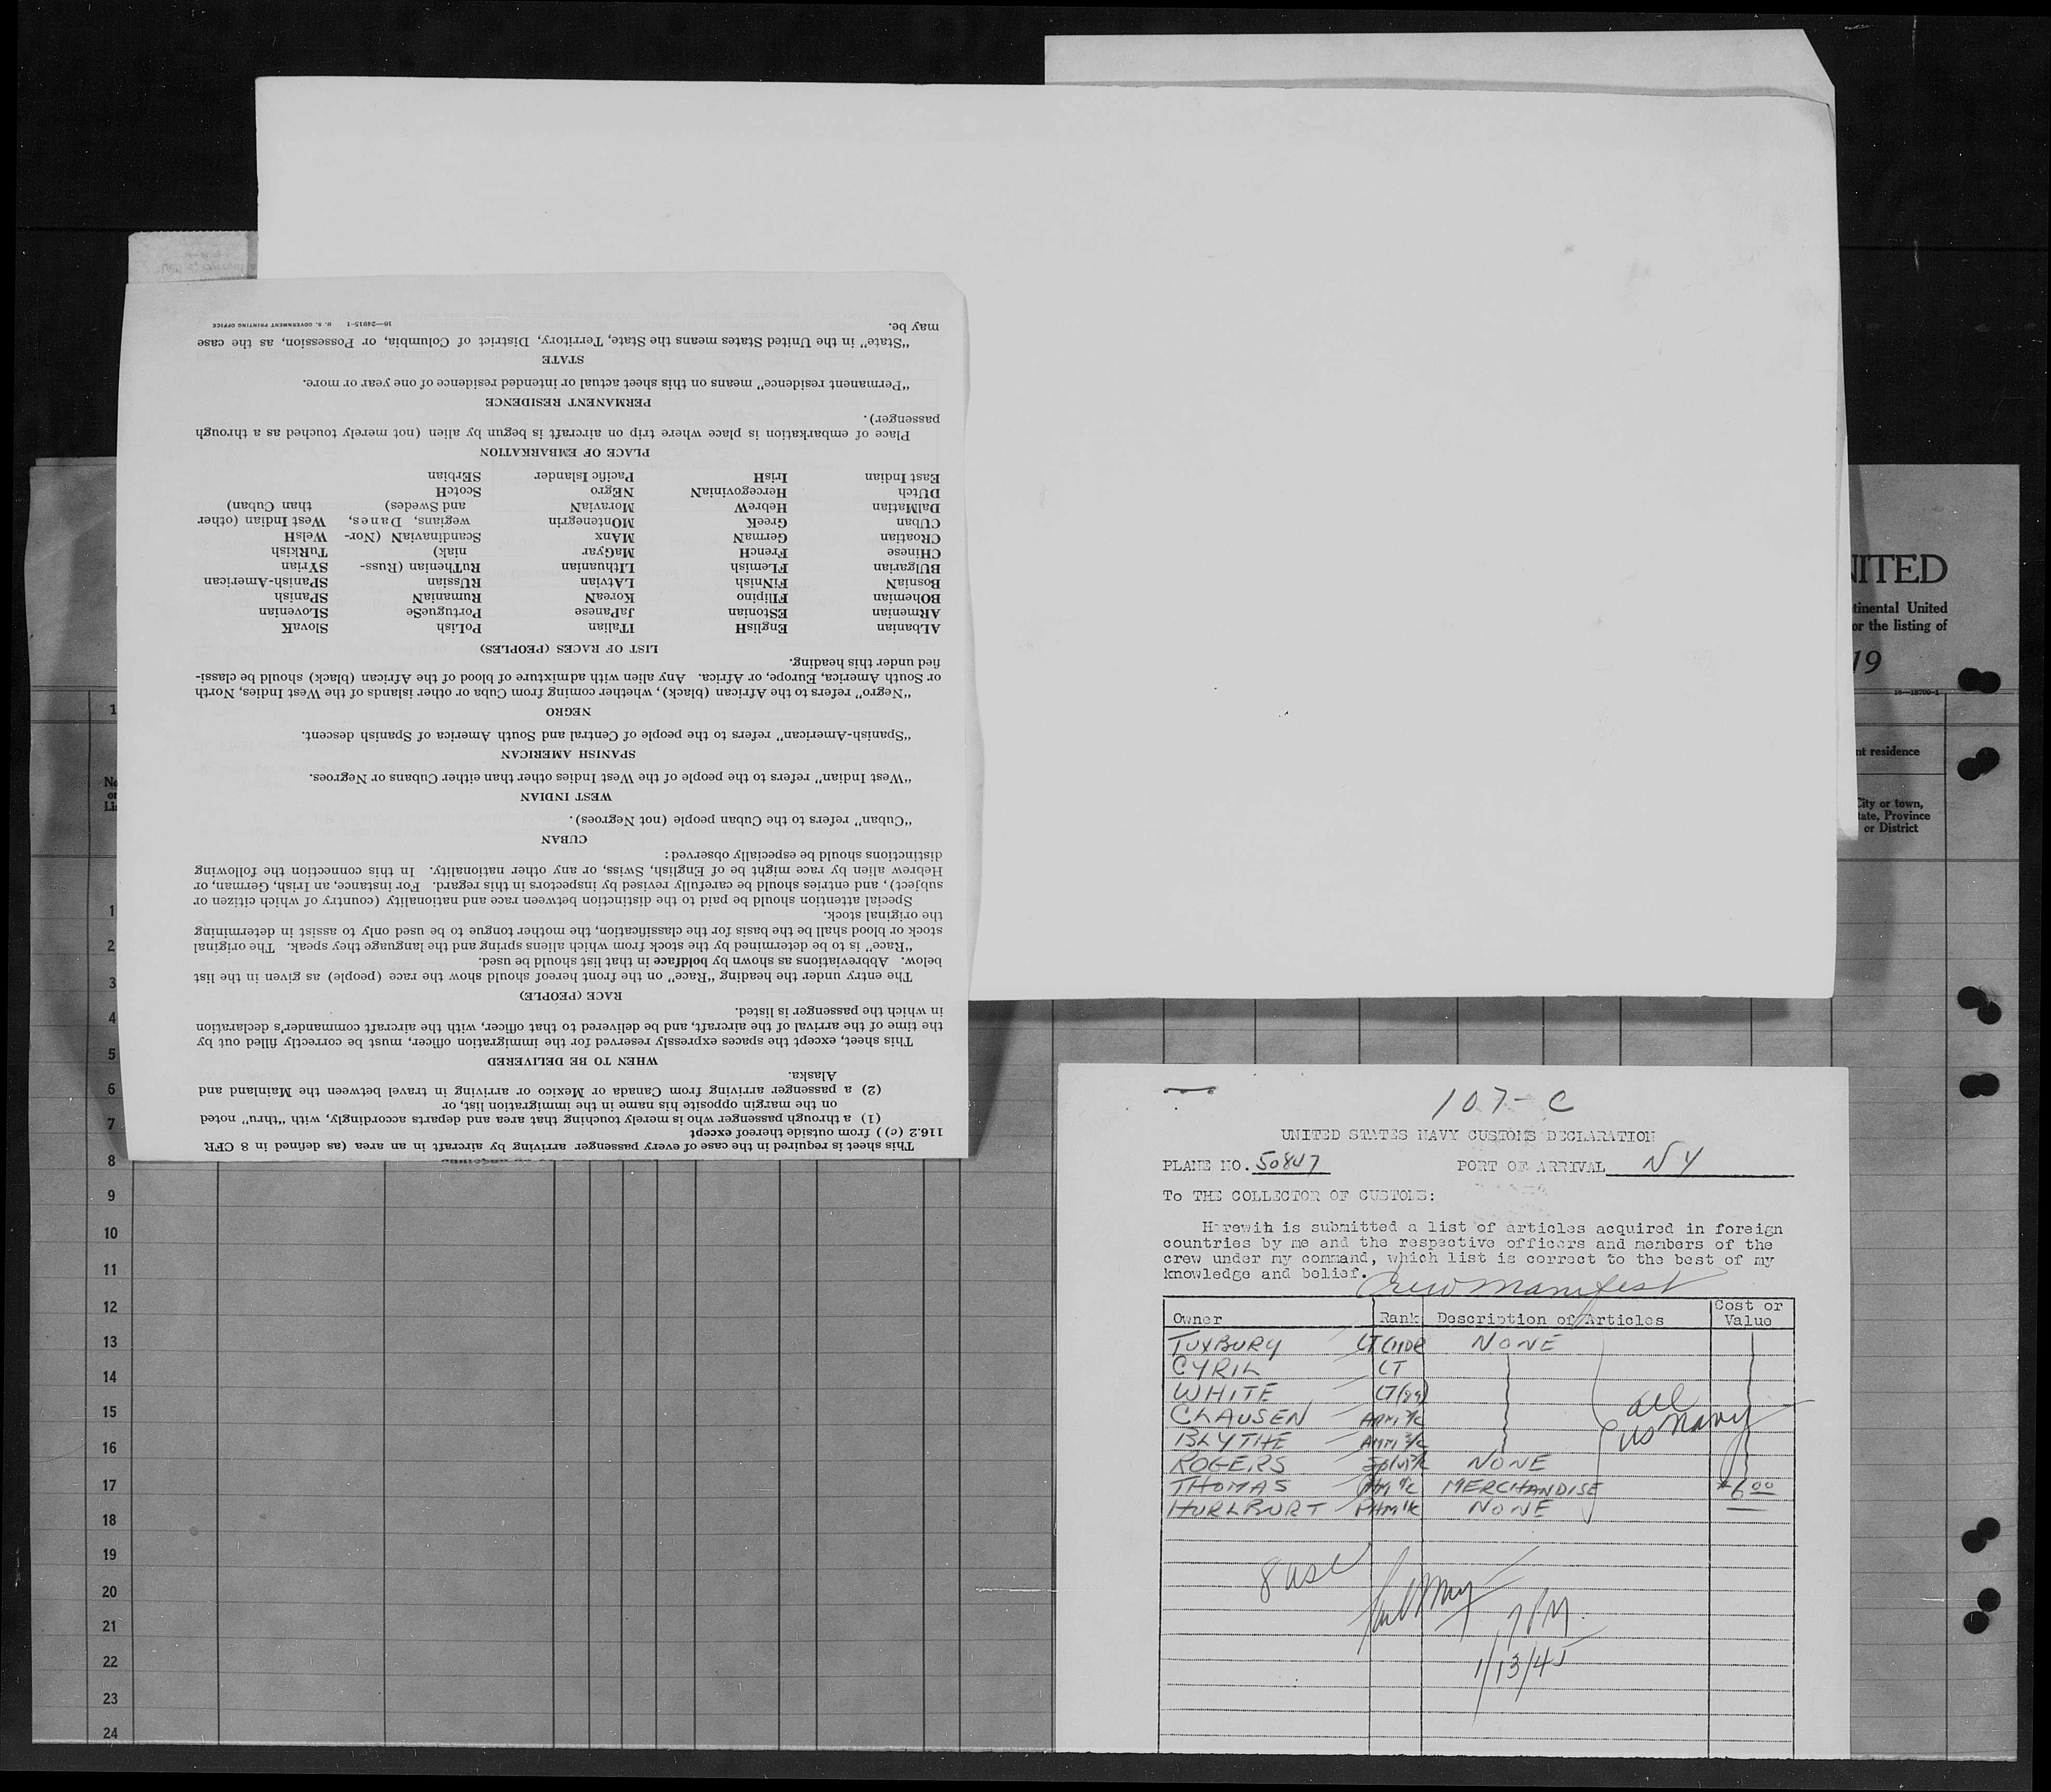 This sheet is required in the case of every passenger arriving by aircraft in an area (as defined in 8 CFR
116.2 (c)) from outside thereof except
(1) a through passenger who is merely touching that area and departs accordingly, with "thru" noted
on the margin opposite his name in the immigration list, or
(2) a passenger arriving from Canada or Mexico or arriving in travel between the Mainland and
Alaska.
WHEN TO BE DELIVERED
This sheet, except the spaces expressly reserved for the immigration officer, must be correctly filled out by
the time of the arrival of the aircraft, and be delivered to that officer, with the aircraft commander's declaration
in which the passenger is listed.
RACE (PEOPLE)
The entry under the heading "Race" on the front hereof should show the race (people) as given in the list
below. Abbreviations as shown by boldface in that list should be used.
"Race" is to be determined by the stock from which aliens spring and the language they speak. The original
stock or blood shall be the basis for the classification, the mother tongue to be used only to assist in determining
the original stock.
Special attention should be paid to the distinction between race and nationality (country of which citizen or
subject), and entries should be carefully revised by inspectors in this regard. For instance, an Irish, German, or
Hebrew alien by race might be of English, Swiss, or any other nationality. In this connection the following
distinctions should be especially observed:
CUBAN
"Cuban" refers to the Cuban people (not Negroes).
WEST INDIAN
"West Indian" refers to the people of the West Indies other than either Cubans or Negroes.
SPANISH AMERICAN
"Spanish-American" refers to the people of Central and South America of Spanish descent.
NEGRO
"Negro" refers to the African (black), whether coming from Cuba or other islands of the West Indies, North
or South America, Europe, or Africa. Any alien with admixture of blood of the African (black) should be classi-
fied under this heading.
LIST OF RACES (PEOPLES)
ALbanian EnglisH ITalian PoLish SlovaK
ARmenian EStonian JaPanese PortugueSe SLovenian
BOhemian FIlipino KoreaN RumaniaN SPanish
BosniaN FiNnish LAtvian RUssian SPanish-American
BUlgarian FLemish LIthuanian RuThenian (Russ- SYrian
CHinese FrencH MaGyar niak) TuRkish
CRoatian GermaN MAnx ScandinaviaN (Nor- WelsH
CUban GreeK MOntenegrin wegians, Danes, West Indian (other
DalMatian HebreW MoraviaN and Swedes) than Cuban)
DUtch HercegoviniaN NEgro ScotcH
East Indian IrisH Pacific Islander SErbian
PLACE OF EMBARKATION
Place of embarkation is place where trip on aircraft is begun by alien (not merely touched as a through
passenger).
PERMANENT RESIDENCE
"Permanent residence" means on this sheet actual or intended residence of one year or more.
STATE
"State" in the United States means the State, Territory, District of Columbia, or Possession, as the case
may be.
16—24915-1 U. S. GOVERNMENT PRINTING OFFICE
NITED
tinental United
or the listing of
19
16—18700-1
nt residence
City or town,
tate, Province
or District
1
No
on
Li
1
2
3
4
5
6
7
8
9
10
11
12
13
14
15
16
17
18
19
20
21
22
23
24
107-C
UNITED STATES NAVY CUSTOMS DECLARATION
PLANE NO. 50847 PORT OF ARRIVAL NY
To THE COLLECTOR OF CUSTOMS:
Herewih is submitted a list of articles acquired in foreign
countries by me and the respective officers and members of the
crew under my command, which list is correct to the best of my
knowledge and belief.
Crew Manifest
Owner Rank Description of Articles Cost or Value
TUXBURY LT CMDR NONE
CYRIL LT
WHITE LT(jg)
CLAUSEN
BLYTHE
ROGERS NONE
THOMAS MERCHANDISE $6.00
HURLBURT NONE
all
US Navy
8 USC
7PM
1/13/45